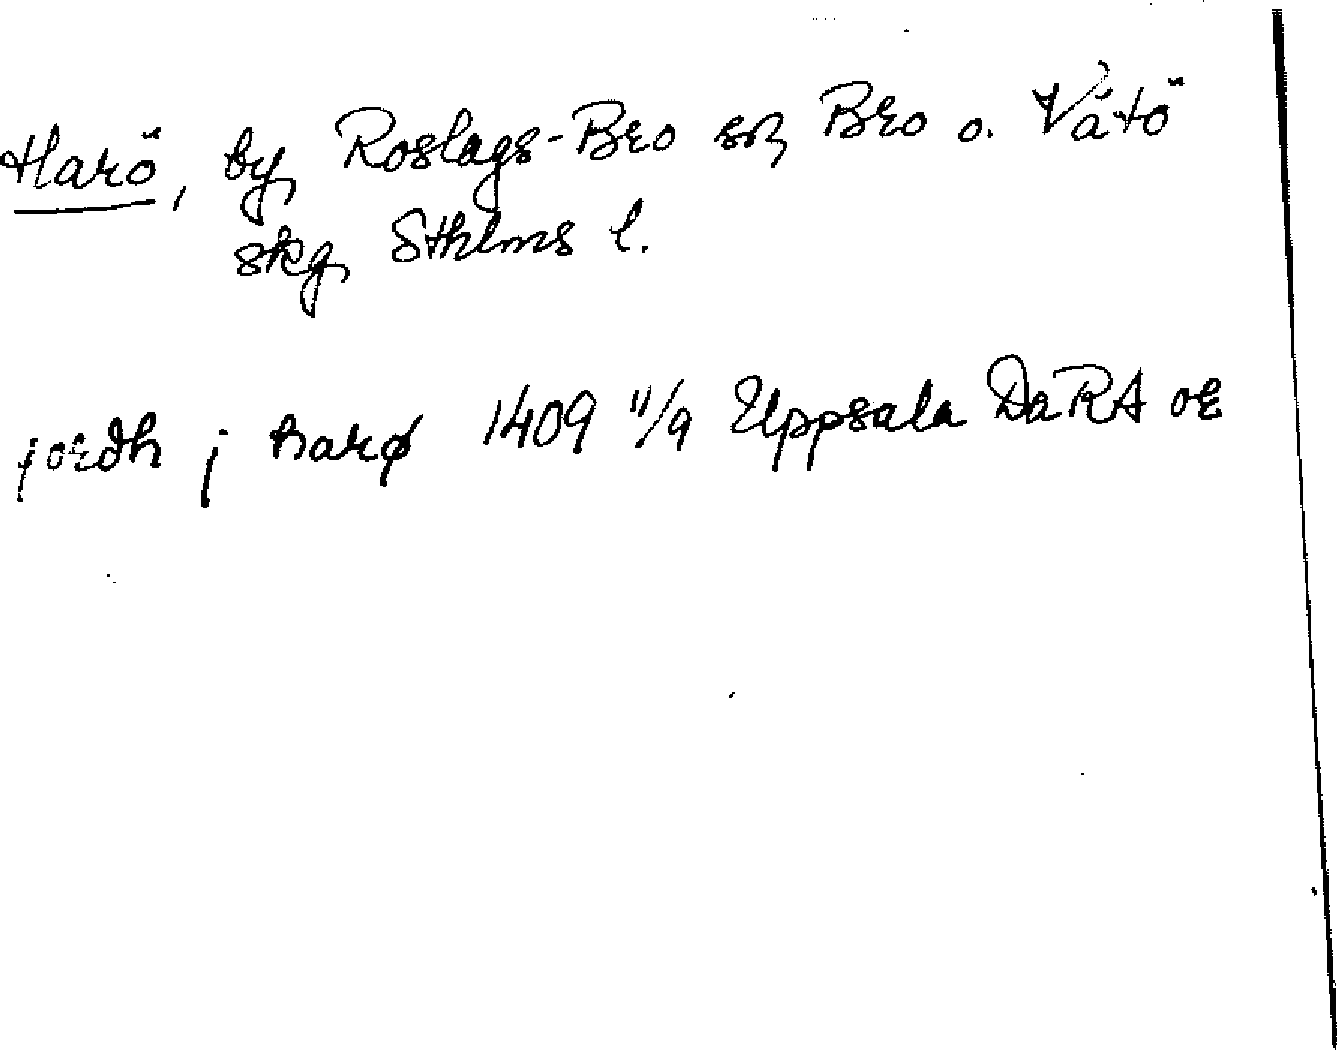 Harö, by, Roslags-Bro sn, Bro o. Vätö
skg, Sthlms l.
jordh j harø 1409 11/9 Uppsala DaRA or